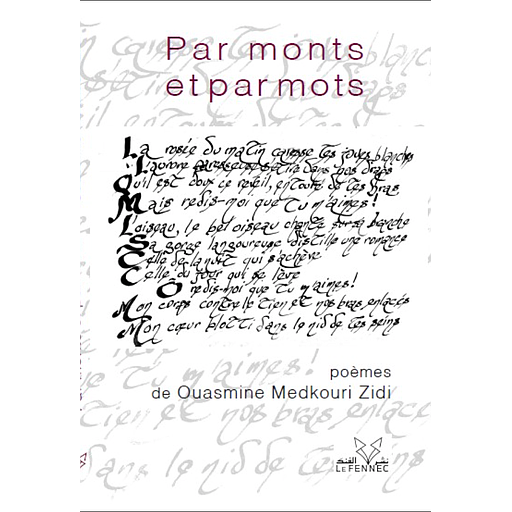 Par monts
et par mots
La rosée du matin caresse tes joues blanches
L'aurore paresseuse s'étire dans nos draps
Qu'il est doux ce réveil, entouré de tes bras
Mais redis-moi que Tu m'aimes!
L'oiseau, le bel oiseau chante sur sa branche
Sa gorge langoureuse distille une romance
Celle de la nuit qui s'achève
Celle du jour qui se lève
O redis-moi que Tu m'aimes!
Mon corps contre le Tien et nos bras enlacés
Mon cœur blotti dans le nid de tes seins
Tu m'aimes!
poèmes
de Ouasmine Medkouri Zidi
Tien et nos bras enlac
dans le nid de tes sein
نشر الفنك
LE FENNEC